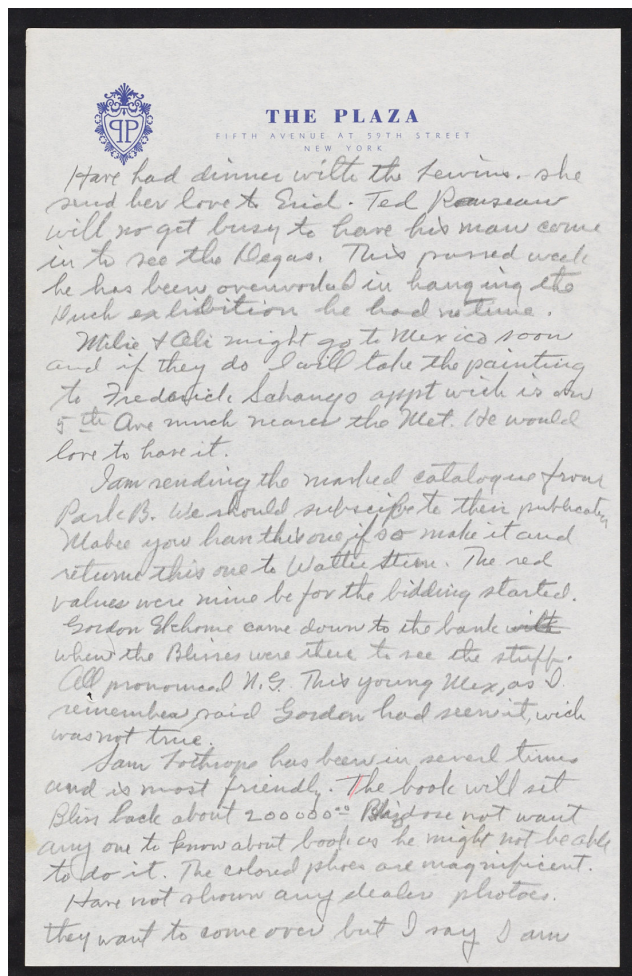 PP
THE PLAZA
FIFTH AVENUE AT 59TH STREET
NEW YORK
Have had dinner with the Lewins. she
send her love to Enid. Ted Rousseau
will no get busy to have his man come
in to see the Degas. This passed week
he has been overworked in hanging the
Duch exhibition he had no time.
Milie & Ali might go to Mexico soon
and if they do I will take the painting
to Frederick Schangs appt wich is on
5th Ave much nearer the Met. He would
love to have it.
I am sending the marked catalogue from
Park B. We should subscribe to their publication
Mabee you han this one if so make it and
returne this one to Wattie Stern. The red
values were mine befor the bidding started.
Gordon Ekholme came down to the bank
when the Blisses were there to see the stuff.
All pronounced N.G. This young Mex, as I
remember, said Gordon had seen it, wich
was not true.
Sam Lothrope has been in several times
and is most friendly. The book will set
Bliss back about 200000.00 Bliss dose not want
any one to know about book as he might not be able
to do it. The colored photos are magnificent.
Have not shown any dealer photoes.
they want to come over but I say I am